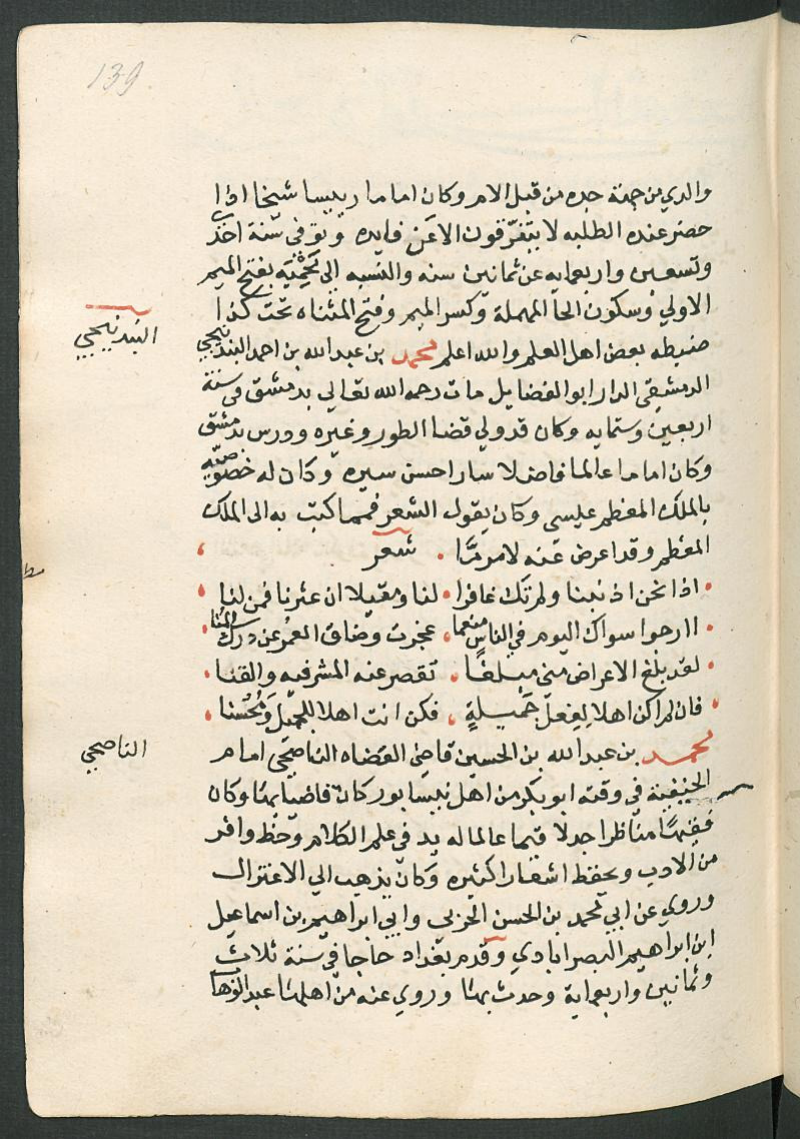 139
والدي من جهة جده من قبل الام وكان اماما رييسا شيخا اذا
حضر عنده الطلبه لا يتفرقون الا عن فايده وتوفي سنة احد
وتسعين واربعمايه عن ثمانين سنه والنسبه الى محميه بفتح الميم
الاولي وسكون الحا المهملة وكسر الميم وفتح المثناه تحت كذا
ضبطه بعض اهل العلم والله اعلم محمد بن عبدالله بن احمد البندنيجي
البندنيجي
الدمشقي الدار ابو الفضايل مات رحمه الله تعالي بدمشق في سنة
اربعين وستمايه وكان قد ولي قضا الطور وغيره ودرس بدمشق
وكان اماما عالما فاضلا سارا حسن سيره وكان له خصوصيه
بالملك المعظم عيسى وكان يقول الشعر فمما كتب به الى الملك
المعظم وقد اعرض عنه لامر ما . شعر
اذا نحن اذنبنا ولم تك غافرا . لنا ومقيلا ان عثرنا فمن لنا
اارجوا سواك اليوم في الناس منعما ، عجزت وضاق العمر عن درك المنا
لقد بلغ الاعراض مني مبلغا . تقصر عنه المشرفيه والقنا
فان لم اكن اهلا لفعل جميلة ، فكن انت اهلا للجميل ومحسنا
محمد بن عبدالله بن الحسين قاضي القضاه الناصحي امام
الناصحي
الحنيفية في وقته ابو بكر من اهل نيسابور كان قاضيا بها وكان
فقيها مناظرا جدلا قيما عالما له يد في علم الكلام وحظ وافر
من الادب ويحفظ اشعارا كثيره وكان يذهب الي الاعتزال
وروي عن ابي محمد بن الحسن الحربي وابي ابراهيم بن اسماعيل
ابن ابراهيم البصراباذي وقدم بغداد حاجا في سنة ثلاث
وثمانين واربعماية وحدث بها وروي عنه من اهلها عبدالوهاب